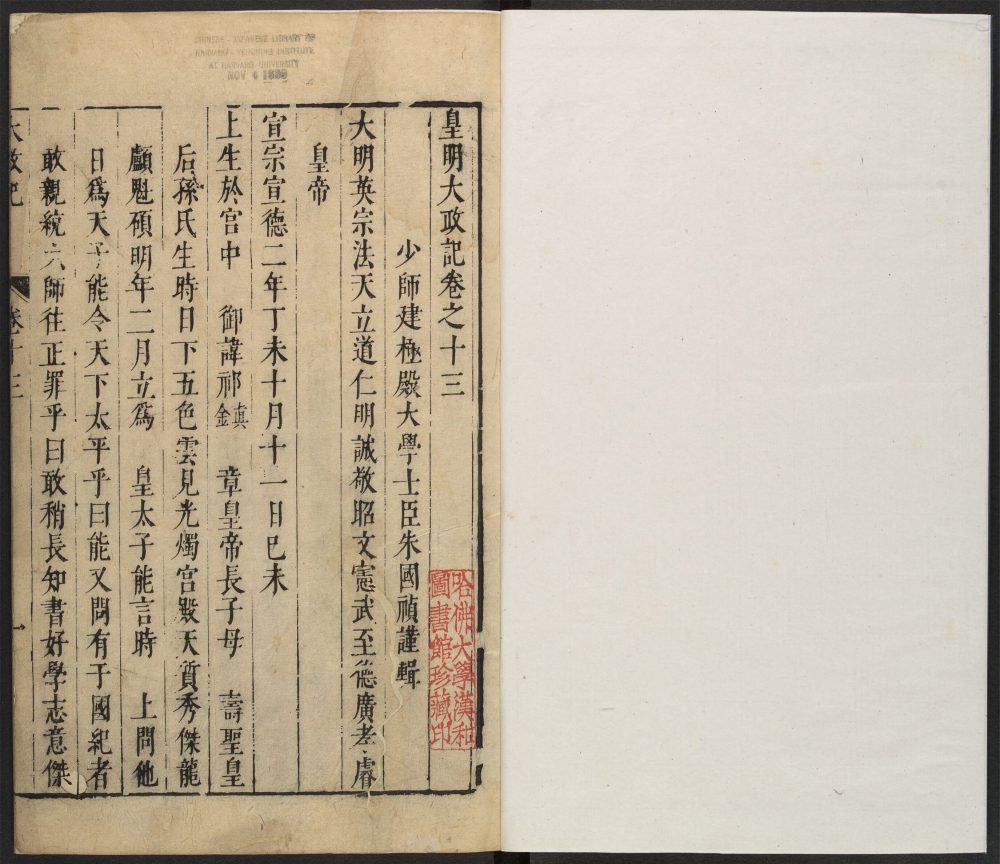 皇明大政記卷之十三
少師建極殿大學士臣朱國禎謹輯
大明英宗法天立道仁明誠敬昭文憲武至德廣孝睿
皇帝
宣宗宣德二年丁未十月十一日巳未
上生於宮中 御諱祁鎮 章皇帝長子母 壽聖皇
后孫氏生時日下五色雲見光燭宮殿天質秀傑龍
顱魁碩明年二月立爲 皇太子能言時 上問他
日爲天子能令天下太平乎曰能又問有干國紀者
敢親統六師往正罪乎曰敢稍長知書好學志意傑
大政記 卷十三 一
哈佛大學漢和
圖書館珍藏印
CHINESE - JAPANESE LIBRARY OF
HARVARD - YENCHING INSTITUTE
AT HARVARD UNIVERSITY
NOV